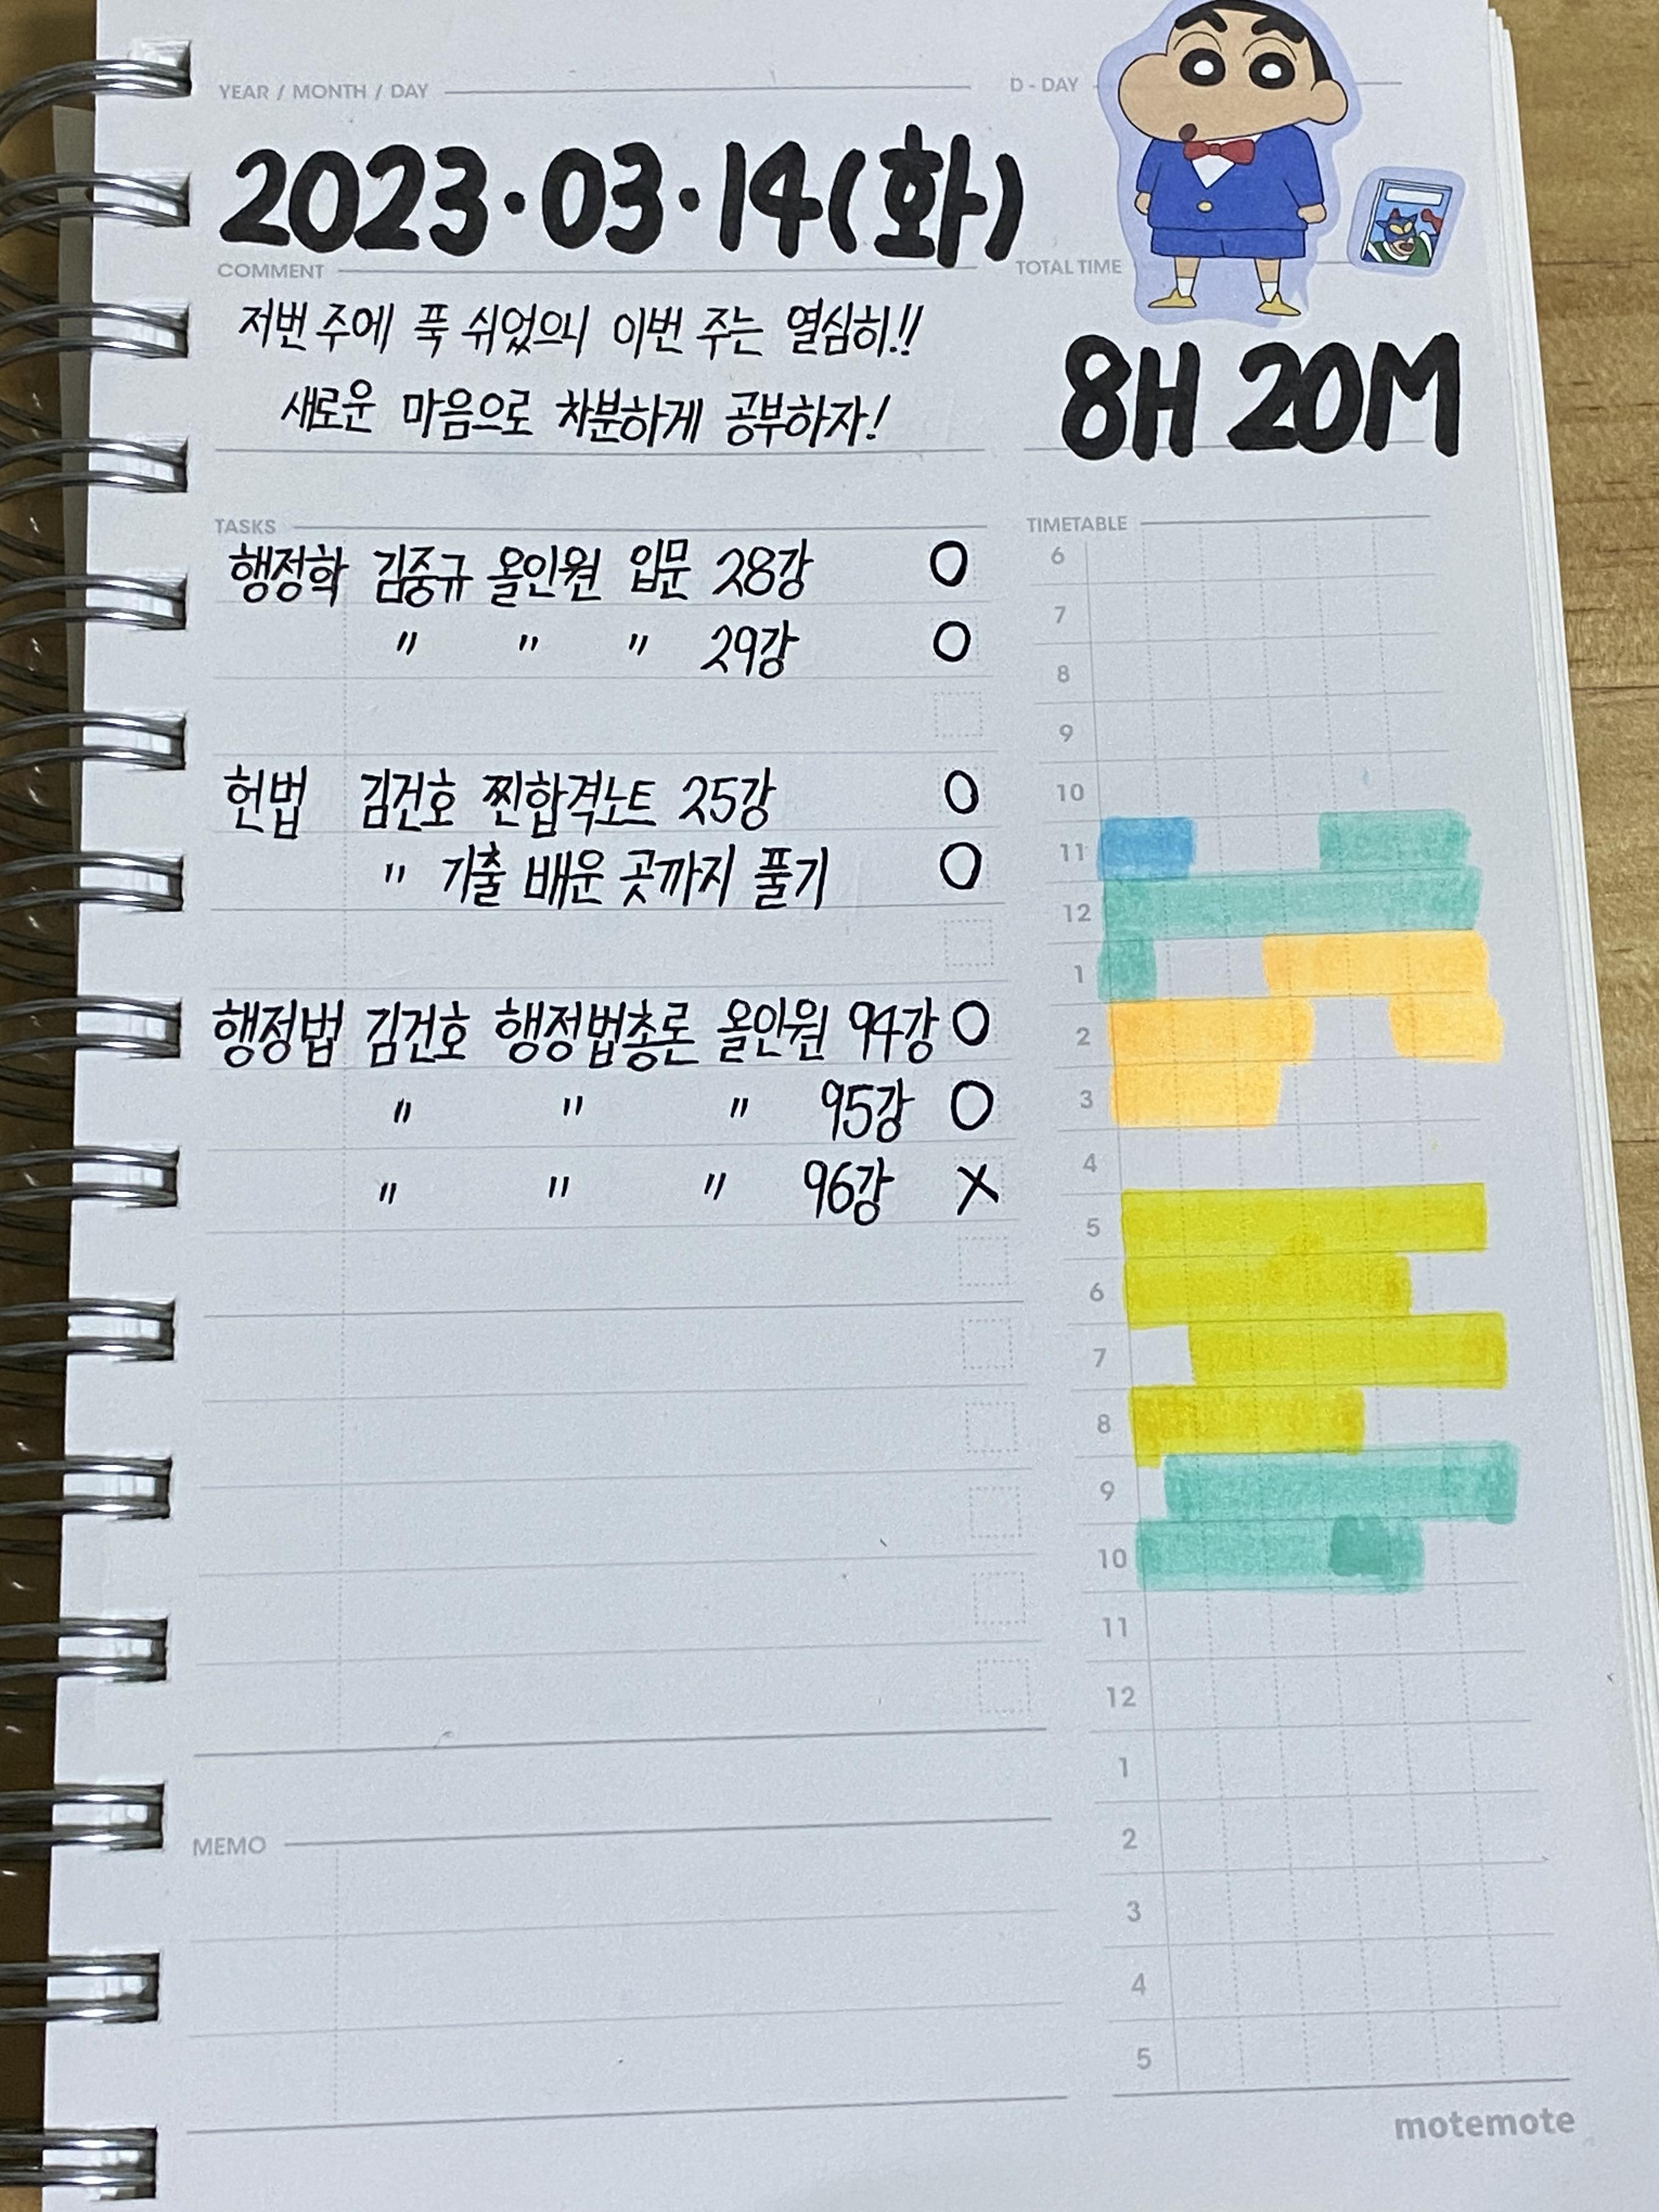 YEAR / MONTH / DAY
D - DAY
2023.03.14(화)
COMMENT
TOTAL TIME
저번 주에 푹 쉬었으니 이번 주는 열심히!!
새로운 마음으로 차분하게 공부하자!
8H 20M
TASKS
행정학 김중규 올인원 입문 28강 O
" " " 29강 O
헌법 김건호 찐합격노트 25강 O
" 기출 배운 곳까지 풀기 O
행정법 김건호 행정법총론 올인원 94강 O
" " " 95강 O
" " " 96강 X
TIMETABLE
6
7
8
9
10
11
12
1
2
3
4
5
6
7
8
9
10
11
12
1
2
3
4
5
MEMO
motemote